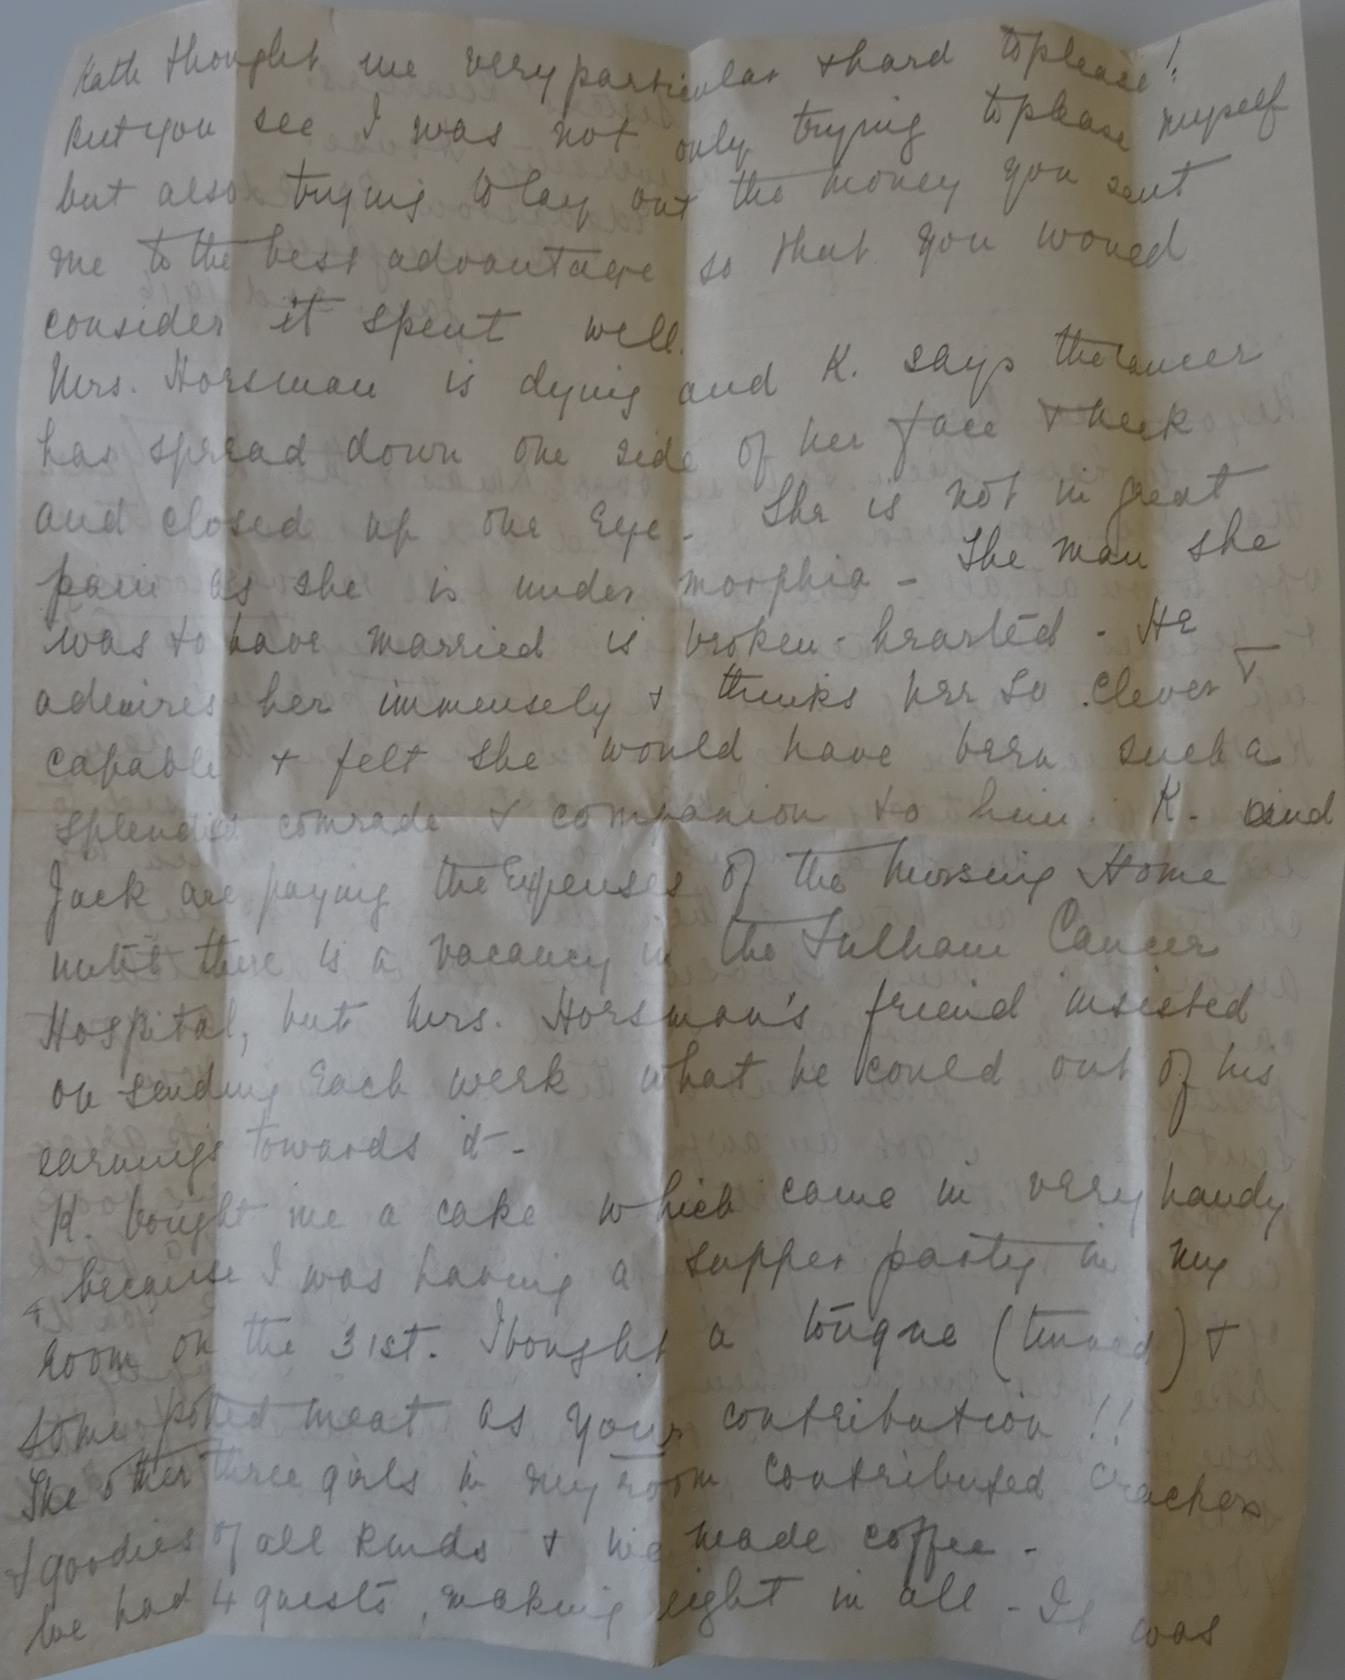 Kath thought me very particular & hard to please!
But you see I was not only trying to please myself
but also trying to lay out the money you sent
me to the best advantage so that you would
consider it spent well.
Mrs. Horsman is dying and K. says the cancer
has spread down one side of her face & neck
and closed up one eye - She is not in great
pain as she is under morphia - The man she
was to have married is broken-hearted - He
admires her immensely & thinks her so clever &
capable & felt she would have been such a
splendid comrade & companion to him. K. and
Jack are paying the expenses of the Nursing Home
until there is a vacancy in the Fulham Cancer
Hospital, but Mrs. Horsman's friend insisted
on sending each week what he could out of his
earnings towards it -
K. bought me a cake which came in very handy
& because I was having a supper party in my
room on the 31st. I bought a tongue (tinned) &
some potted meat as your contribution!!
The other three girls in my room contributed crackers
& goodies of all kinds & we made coffee -
We had 4 guests, making eight in all - It was